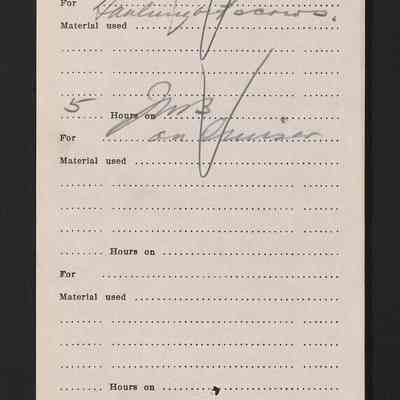 For Hauling scows.
Material used
5 Hours on
For on Cruiser
Material used
Hours on
For
Material used
Hours on